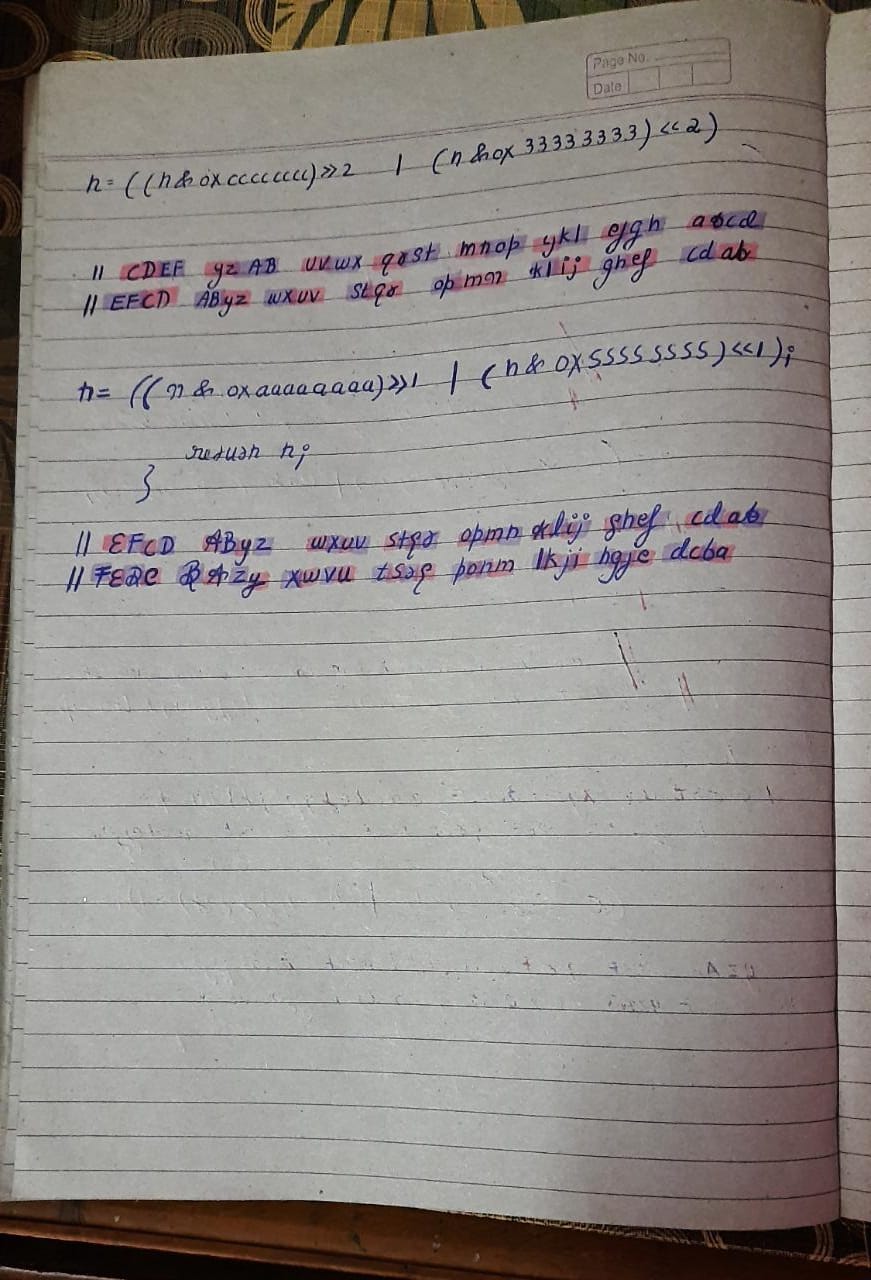 Page No.
Date
n = ((n & 0xcccccccc) >> 2 | (n & 0x33333333) << 2)
// CDEF yz AB uvwx qrst mnop ijkl efgh abcd
// EFCD AByz wxuv stqr opmn klij ghef cd ab
n = ((n & 0xaaaaaaaa) >> 1 | (n & 0x55555555) << 1);
return n;
}
// EFCD AByz wxuv stqr opmn klij ghef cd ab
// FEDC BAzy xwvu tsrq ponm lkji hgfe dcba